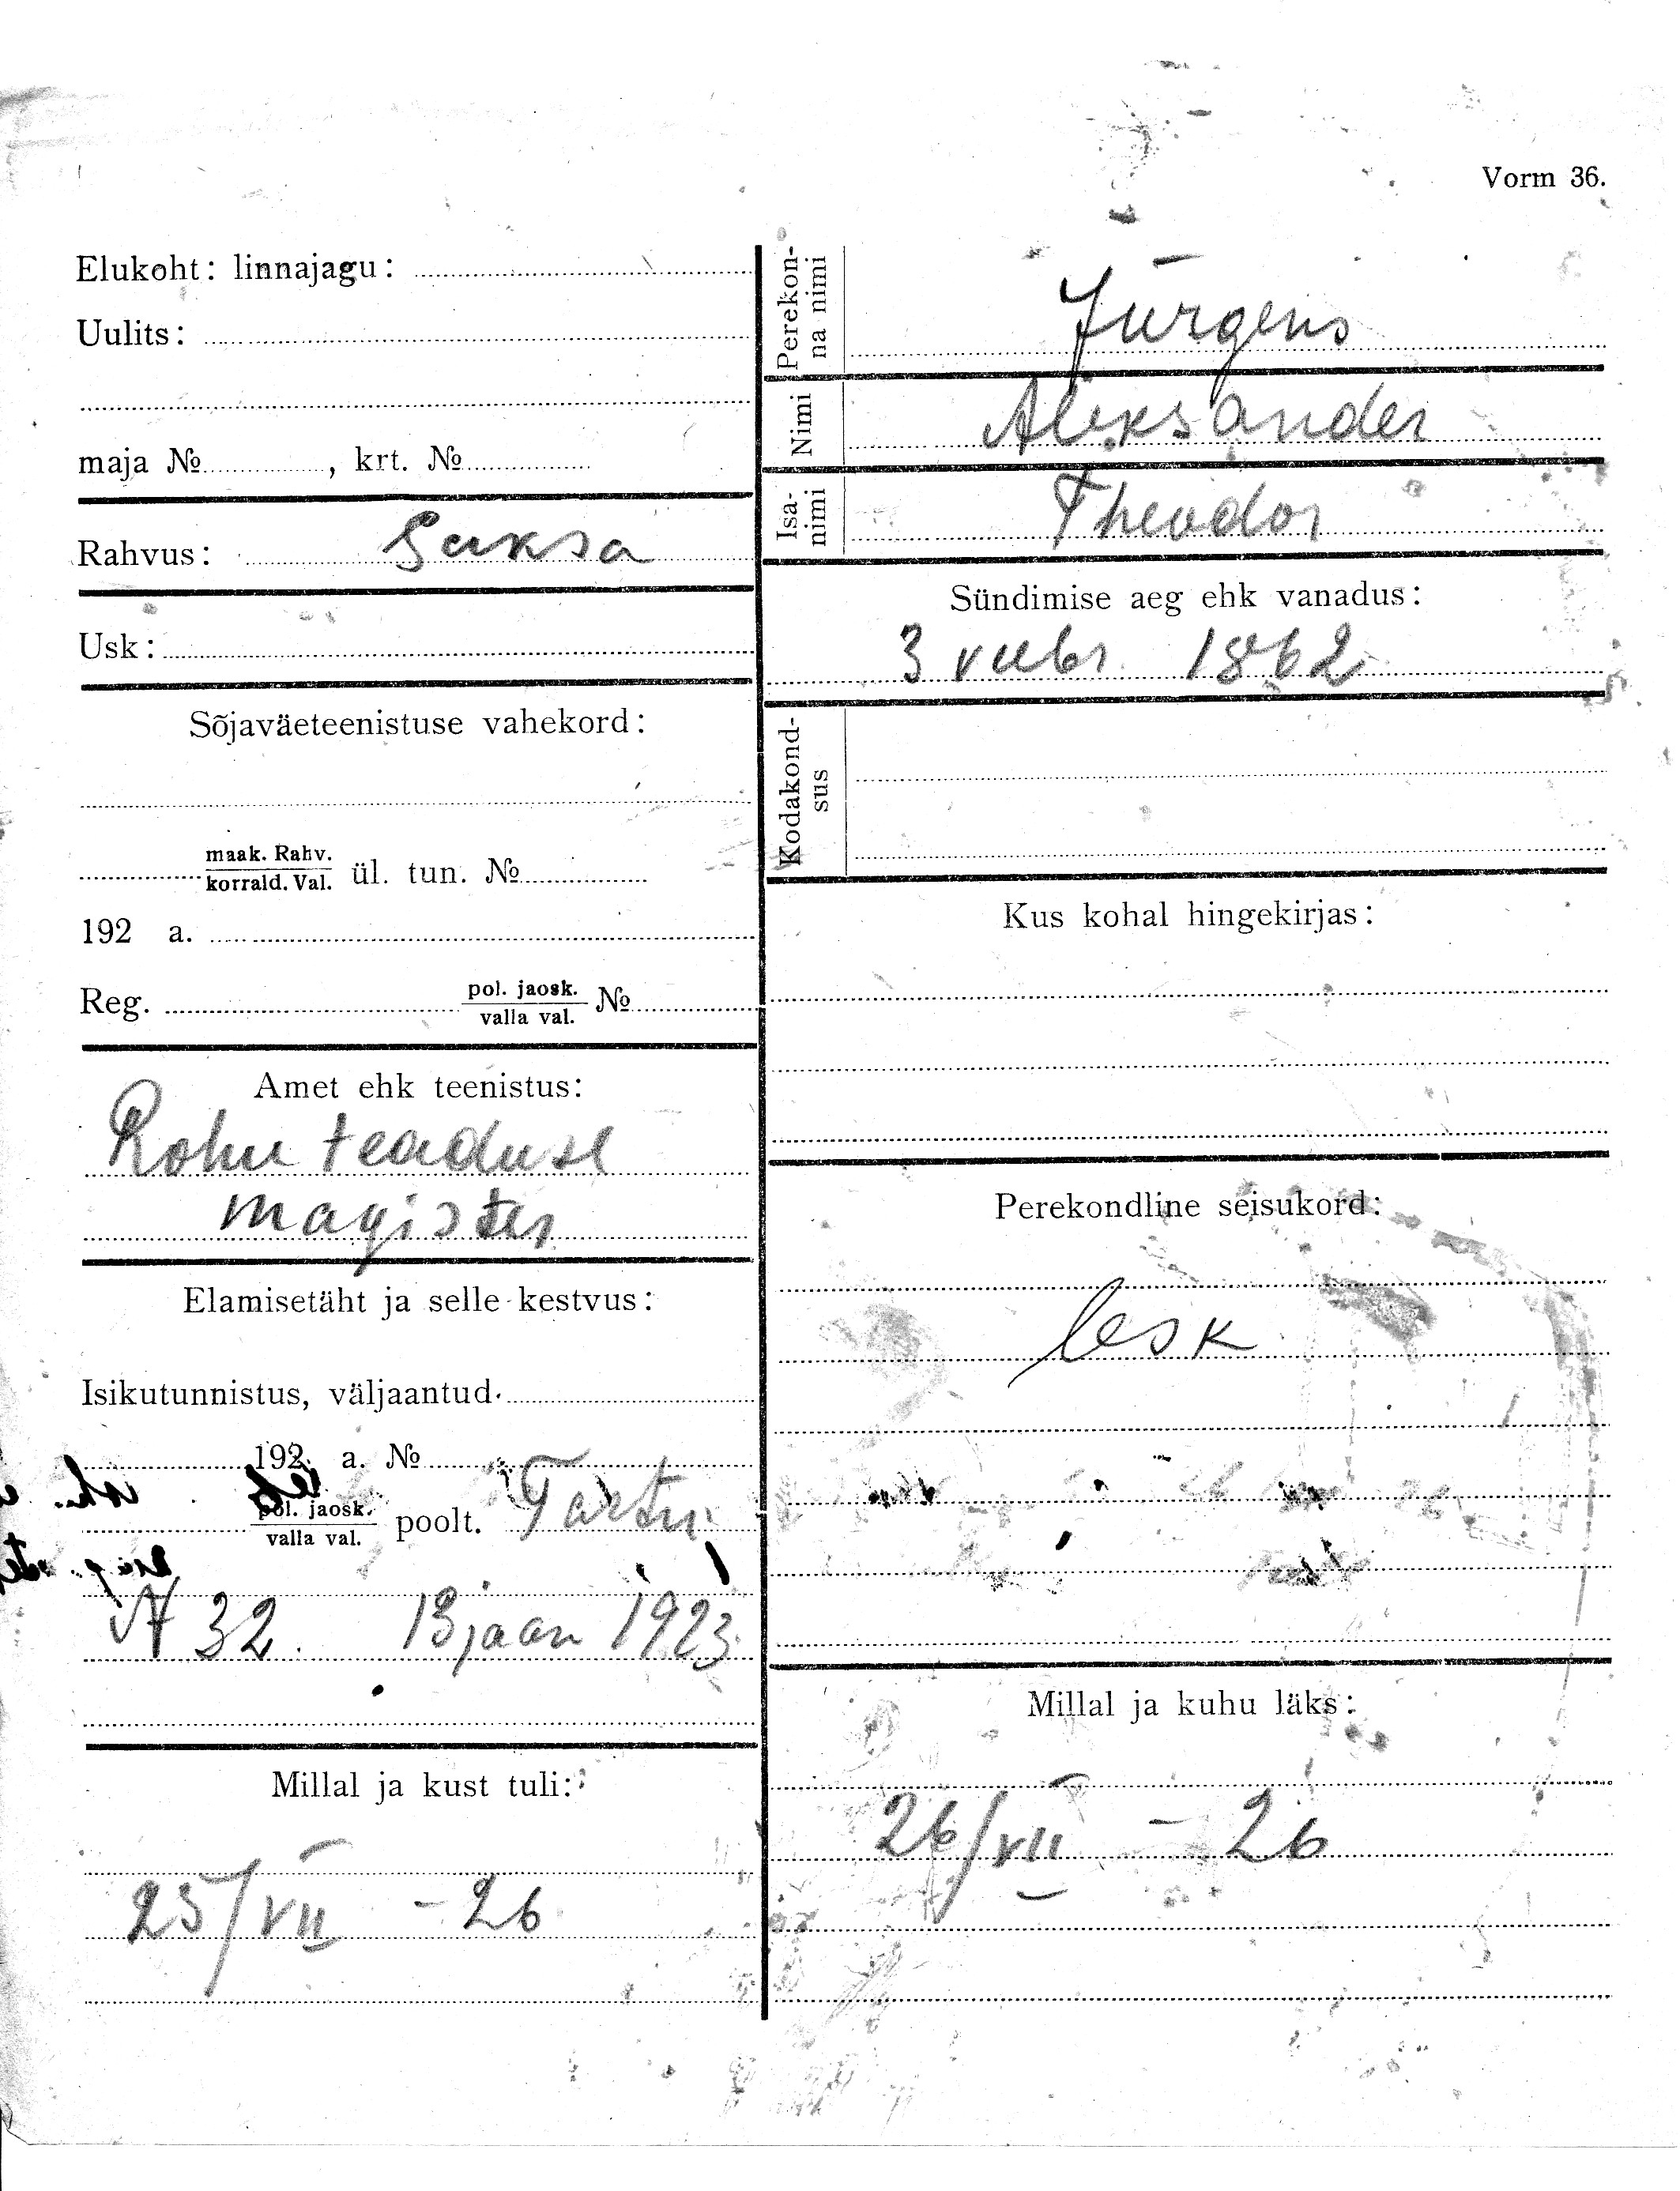 Vorm 36.
Elukoht: linnajagu:
Uulits:
maja № , krt. №
Rahvus: Saksa
Usk:
Sõjaväeteenistuse vahekord:
maak. Rahv.
korrald. Val. ül. tun. №
192 a.
Reg. pol. jaosk.
valla val. №
Amet ehk teenistus:
Rohu teaduse
magister
Elamisetäht ja selle kestvus:
Isikutunnistus, väljaantud
192 a. №
pol. jaosk.
valla val. poolt. Tartu
№ 32. 13 jaan 1923
Millal ja kust tuli:
25/VII - 26
Perekon-
na nimi
Jürgens
Nimi Aleksander
Isa-
nimi
Theodor
Sündimise aeg ehk vanadus:
3 veebr 1862
Kodakond-
sus
Kus kohal hingekirjas:
Perekondline seisukord:
lesk
Millal ja kuhu läks:
26/VII - 26